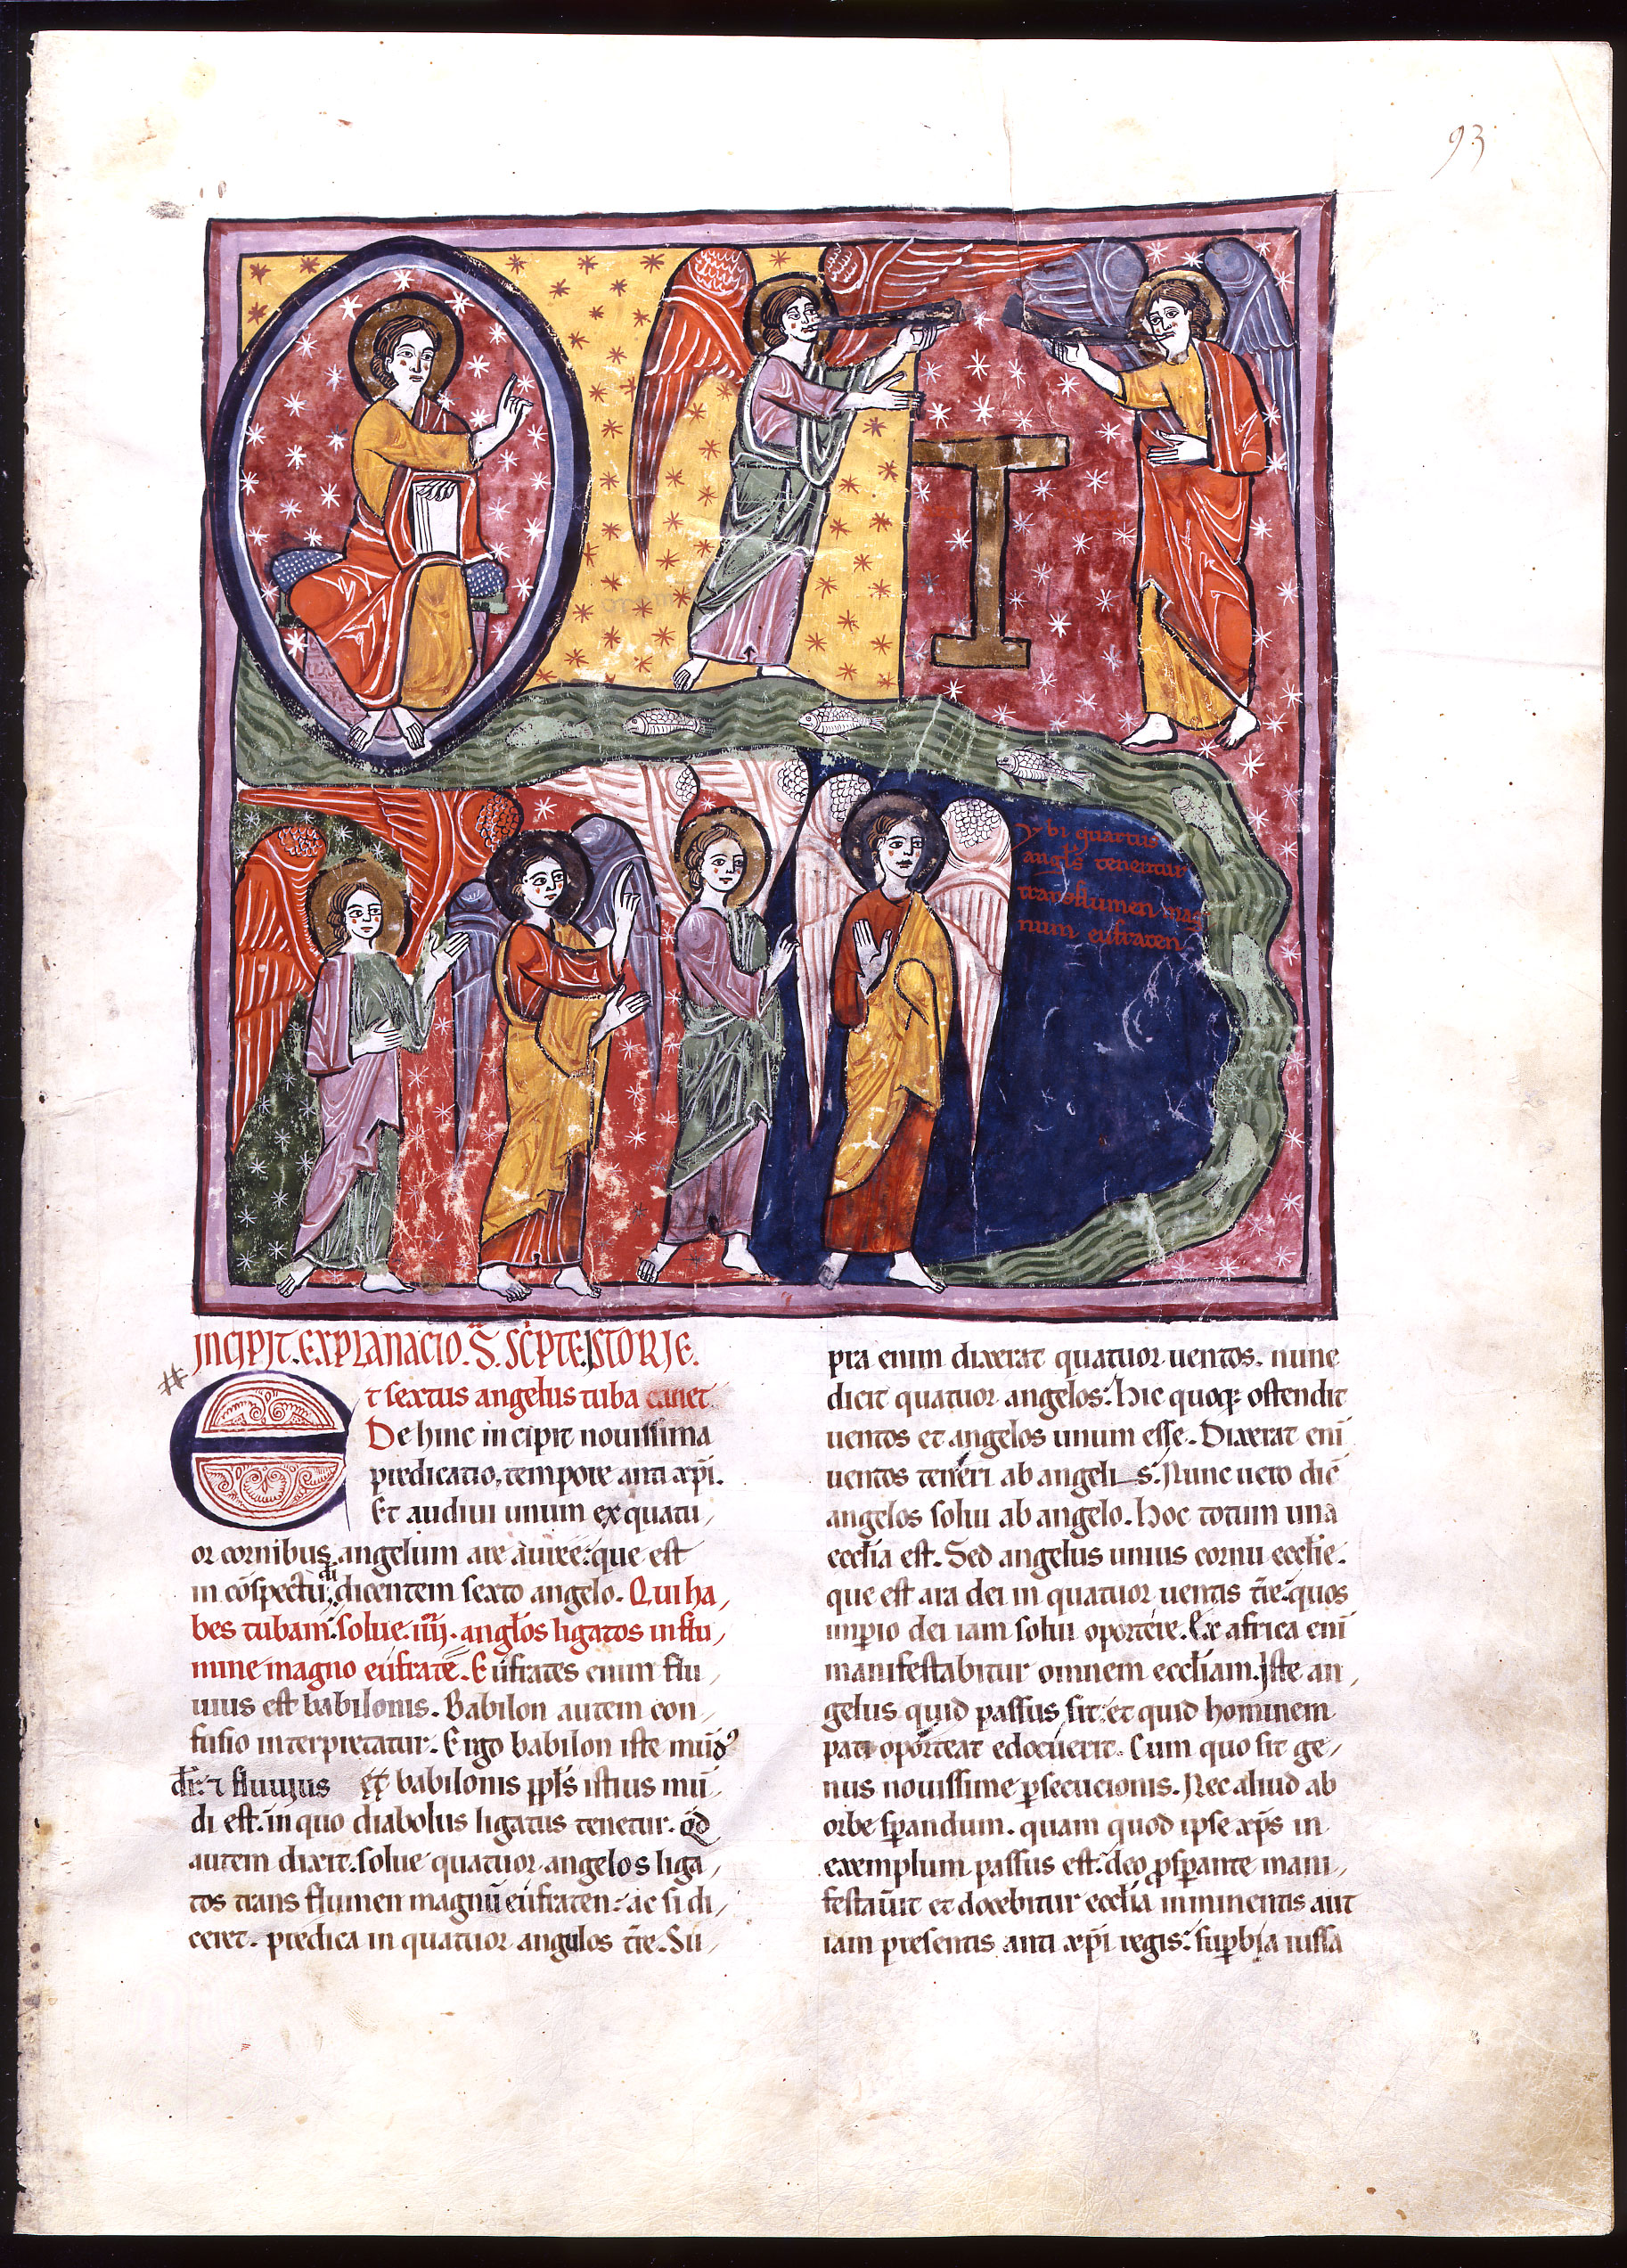 93
ybi quattus
angl̄s tenentur
transflumen mag
num eufraten
INCIPIT. EXPLANACIO. S. SCPTE. ISTORIE.
Et sextus angelus tuba canet
De hinc incipit nouissima
predicatio, tempore anti xp̄i.
Et audiui unum ex quatu,
or cornibus angelum are auree: que est
in cōspectu di: dicentem sexto angelo. Qui ha,
bes tubam: solue .iiii. anglōs ligatos in flu,
mine magno eufratē. Eufrates enim flu,
uius est babilonis. Babilon autem con,
fusio interpretatur. Ergo babilon iste mūd9
dr̄: ⁊ fluuius ex babilonis ppl̄s istius mū,
di est. in quo diabolus ligatus tenetur. qd̄
autem dixit. solue quatuor angelos liga,
tos trans flumen magnū eufraten: ac si di,
ceret. predica in quatuor angulos tr̄e. Su,
pra enim dixerat quatuor uentos. nunc
dicit quatuor angelos: hic quoq; ostendit
uentos et angelos unum esse. Dixerat enī
uentos teneri ab angelis: Nunc uero dic̄
angelos solui ab angelo. hoc totum una
eccl̄ia est. Sed angelus unius cornu eccl̄ie.
que est ara dei in quatuor uentis tr̄e: quos
imperio dei iam solui oportere. Ex africa enī
manifestabitur omnem eccl̄iam. Iste an,
gelus quid passus sit: et quid hominem
pati oporteat edocuerit. Cum quo sit ge,
nus nouissime psecucionis. Nec aliud ab
orbe spandum. quam quod ipse xp̄s in
exemplum passus est. deo prosperante mani,
festauit et docebitur eccl̄ia imminentis aut
iam presentis anti xp̄i regis: supbia iussa